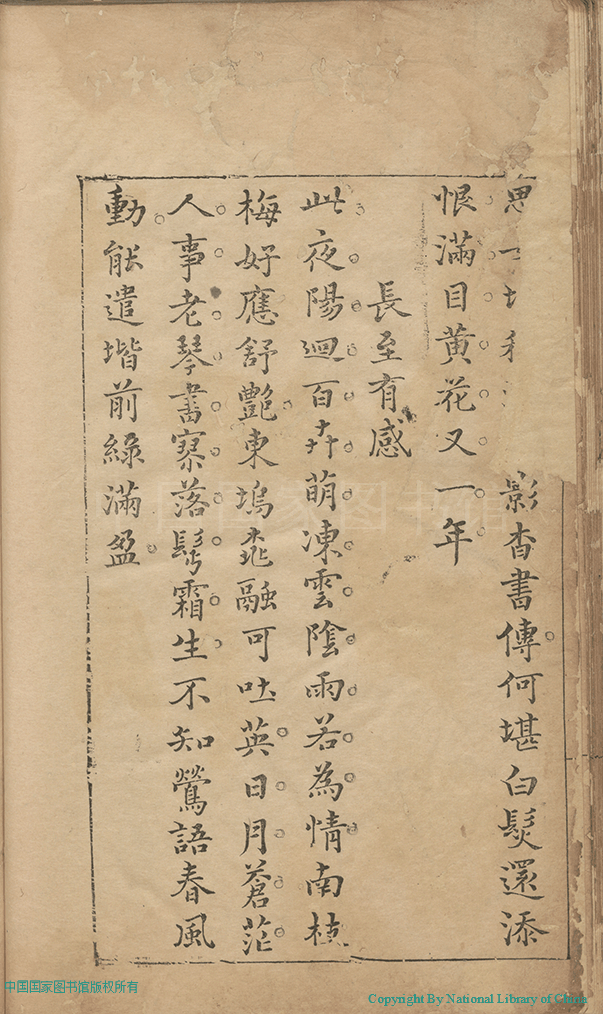 影杳書傳何堪白髮還添
恨滿目黄花又一年
長至有感
此夜陽迴百卉萌凍雲陰雨若為情南枝
梅好應舒艷東塢桃融可吐英日月蒼茫
人事老琴書寥落鬂霜生不知鶯語春風
動能遣堦前綠滿盈
中国国家图书馆版权所有
Copyright By National Library of China